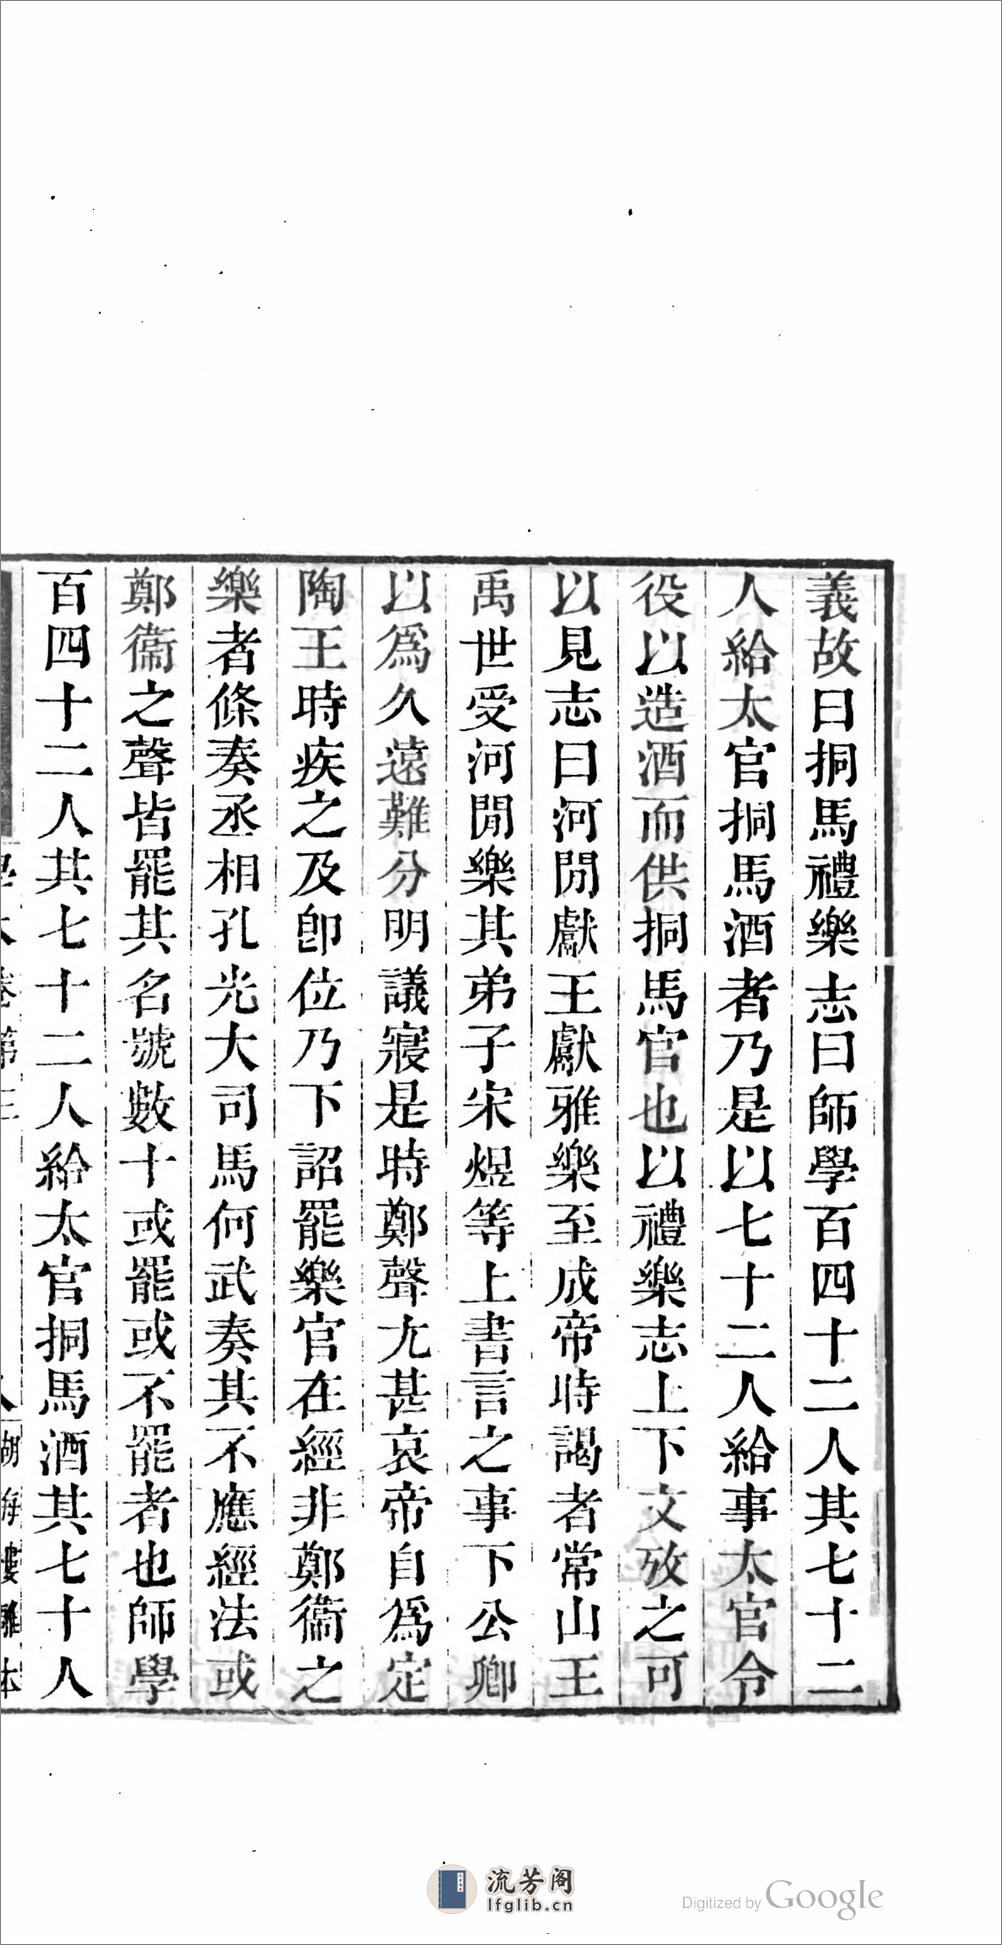 義故曰挏馬禮樂志曰師學百四十二人其七十二
人給太官挏馬酒者乃是以七十二人給事太官令
役以造酒而供挏馬官也以禮樂志上下文攷之可
以見志曰河閒獻王獻雅樂至成帝時謁者常山王
禹世受河閒樂其弟子宋煜等上書言之事下公卿
以爲久遠難分明議寢是時鄭聲尤甚哀帝自爲定
陶王時疾之及卽位乃下詔罷樂官在經非鄭衞之
樂者條奏丞相孔光大司馬何武奏其不應經法或
鄭衞之聲皆罷其名號數十或罷或不罷者也師學
百四十二人其七十二人給太官挏馬酒其七十人
卷第三
八
湖海樓雕本
流芳阁
lfglib.cn
Digitized by Google